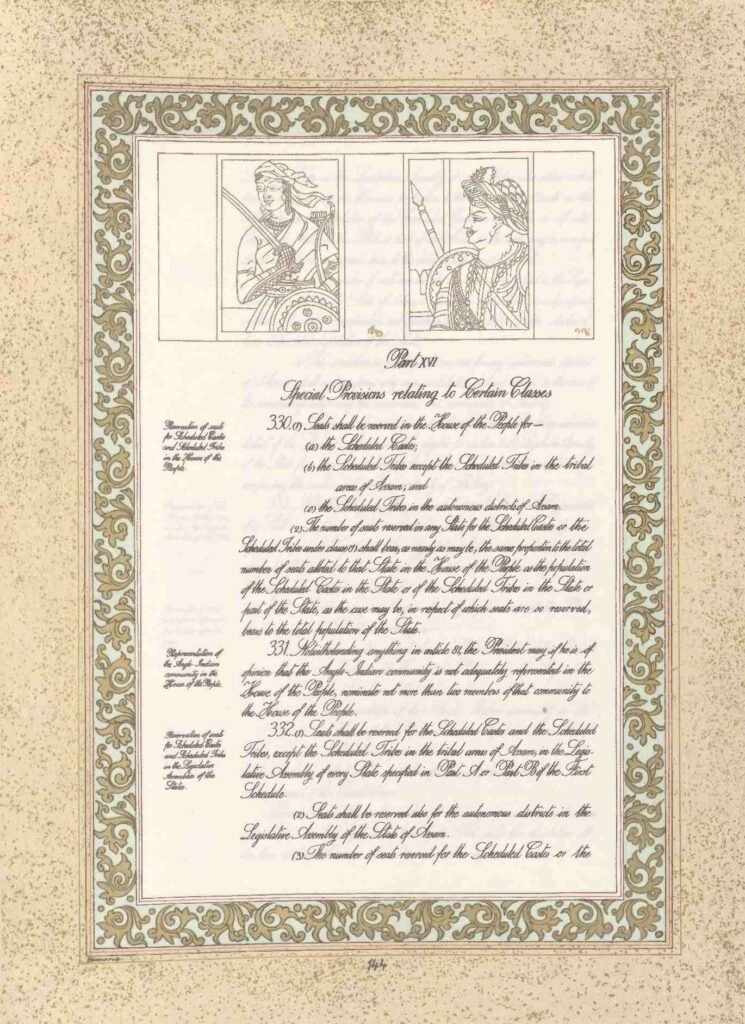 Part XVI
Special Provisions relating to Certain Classes
Reservation of seats
for Scheduled Castes
and Scheduled Tribes
in the House of the
People.
330.(1) Seats shall be reserved in the House of the People for—
(a) the Scheduled Castes;
(b) the Scheduled Tribes except the Scheduled Tribes in the tribal
areas of Assam; and
(c) the Scheduled Tribes in the autonomous districts of Assam.
(2) The number of seats reserved in any State for the Scheduled Castes or the
Scheduled Tribes under clause (1) shall bear, as nearly as may be, the same proportion to the total
number of seats allotted to that State in the House of the People as the population
of the Scheduled Castes in the State or of the Scheduled Tribes in the State or
part of the State, as the case may be, in respect of which seats are so reserved,
bears to the total population of the State.
Representation of
the Anglo-Indian
community in the
House of the People.
331. Notwithstanding anything in article 81, the President may, if he is of
opinion that the Anglo-Indian community is not adequately represented in the
House of the People, nominate not more than two members of that community to
the House of the People.
Reservation of seats
for Scheduled Castes
and Scheduled Tribes
in the Legislative
Assemblies of the
States.
332.(1) Seats shall be reserved for the Scheduled Castes and the Scheduled
Tribes, except the Scheduled Tribes in the tribal areas of Assam, in the Legis-
lative Assembly of every State specified in Part A or Part B of the First
Schedule.
(2) Seats shall be reserved also for the autonomous districts in the
Legislative Assembly of the State of Assam.
(3) The number of seats reserved for the Scheduled Castes or the
144